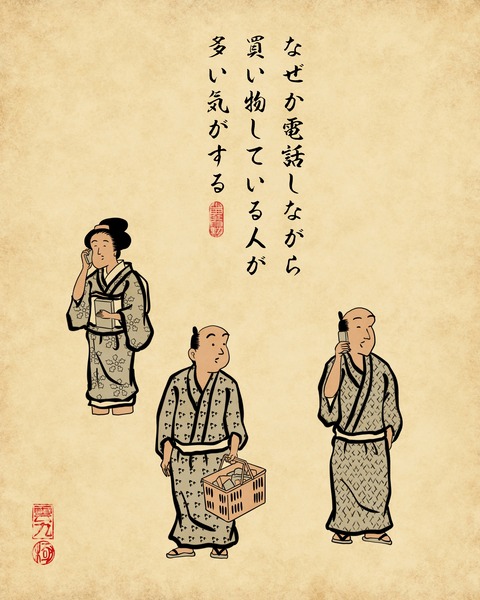 なぜか電話しながら
買い物している人が
多い気がする